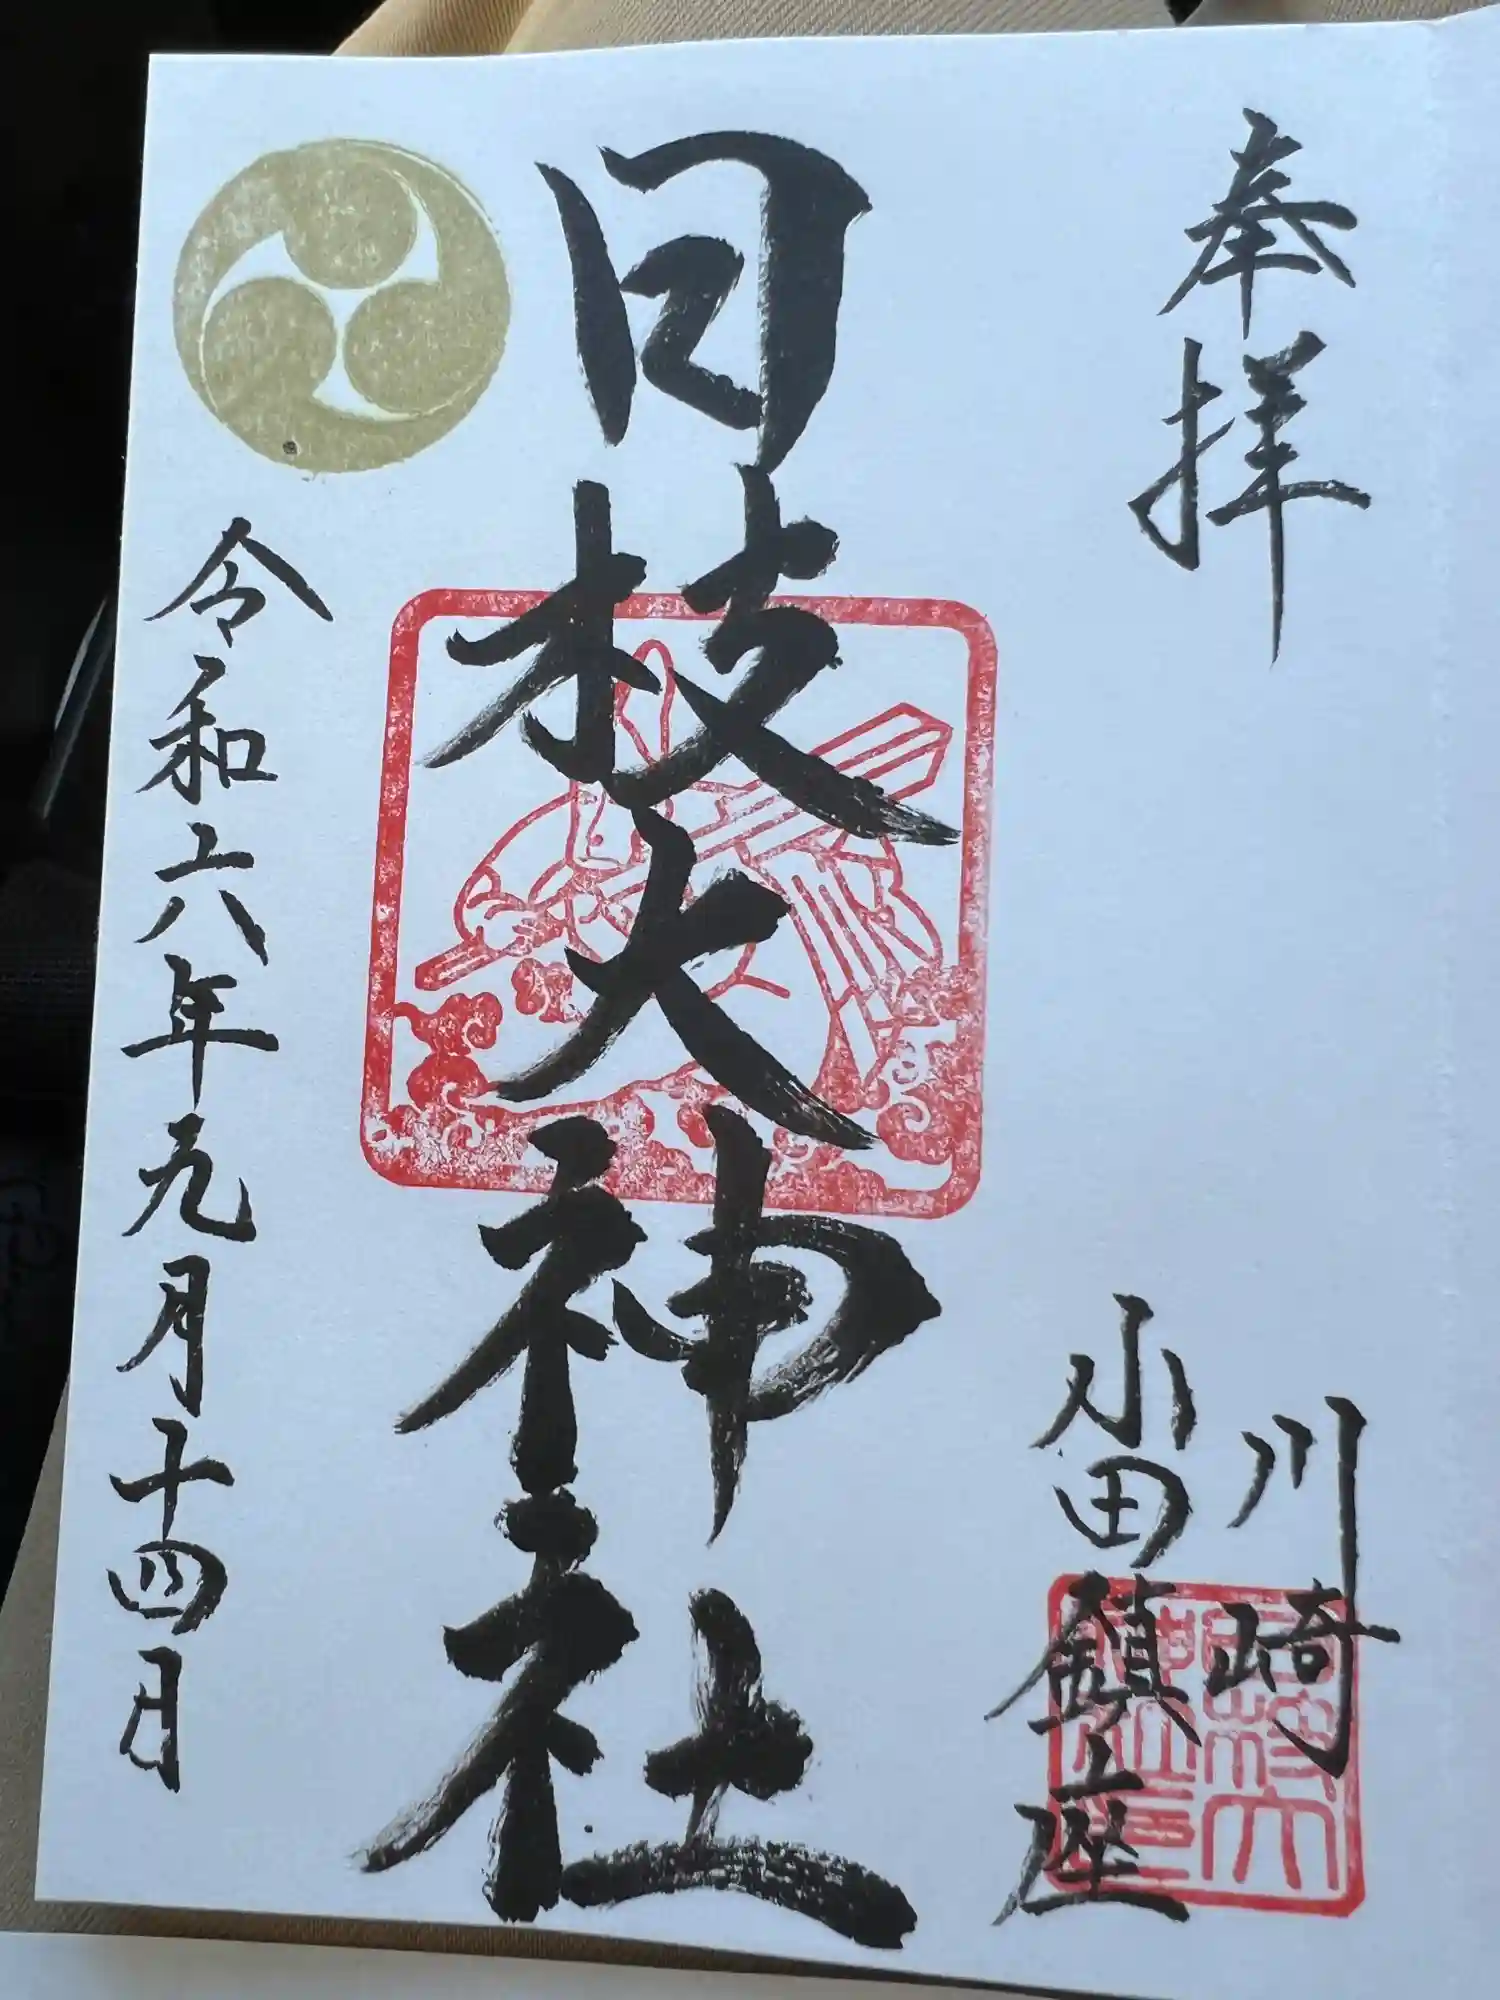 奉拝
川崎
小田鎮座
日枝大神社
令和六年九月十四日